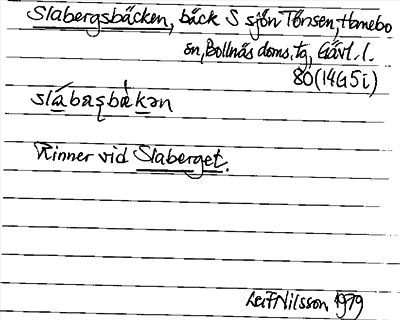 Slabergsbäcken, bäck S sjön Tönsen, Hanebo
sn, Bollnäs doms. tg, Gävl. l.
80 (14G5i)
Rinner vid Slaberget.
Leif Nilsson 1979